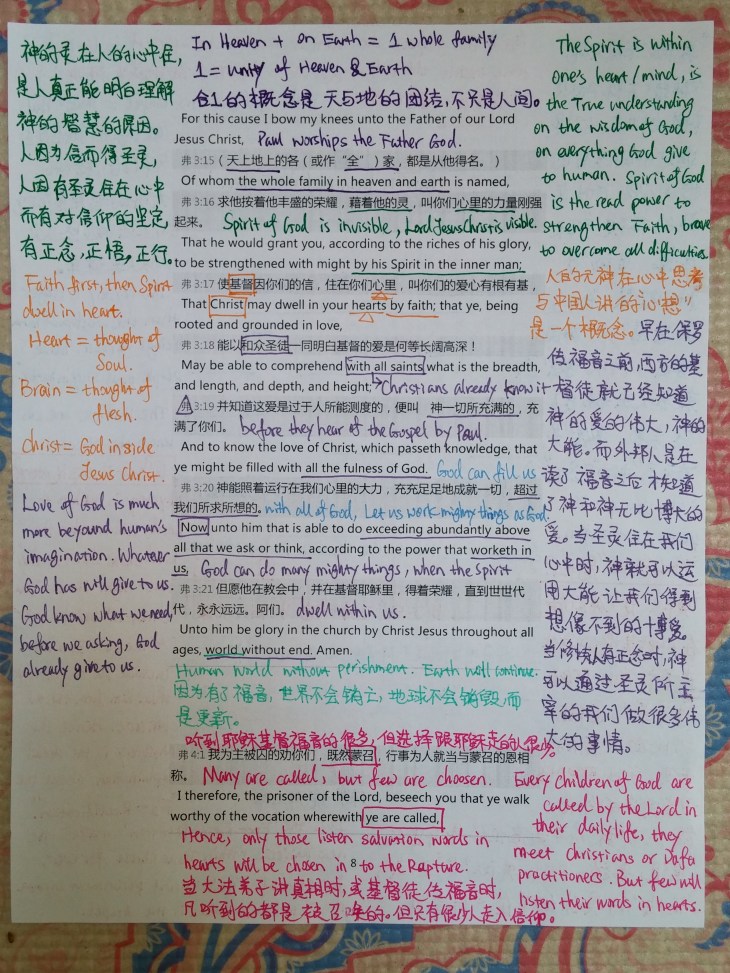 神的灵在人的心中住,
是人真正能明白理解
神的智慧的原因。
人因为信而得圣灵,
人因有圣灵住在心中
而有对信仰的坚定,
有正念,正悟,正行。
Faith first, then Spirit
dwell in heart.
Heart = thought of
Soul.
Brain = thought of
flesh.
Christ = God inside
Jesus Christ.
Love of God is much
more beyound human's
imagination. Whatever
God has will give to us.
God know what we need,
before we asking, God
already give to us.
In Heaven + on Earth = 1 whole family
1 = unity of Heaven & Earth
合1的概念是天与地的团结,不只是人间。
For this cause I bow my knees unto the Father of our Lord
Jesus Christ, Paul worships the Father God.
弗 3:15(天上地上的各(或作“全”)家,都是从他得名。)
Of whom the whole family in heaven and earth is named,
弗 3:16 求他按着他丰盛的荣耀,藉着他的灵,叫你们心里的力量刚强
起来。 Spirit of God is invisible, Lord Jesus Christ is visible.
That he would grant you, according to the riches of his glory,
to be strengthened with might by his Spirit in the inner man;
弗 3:17 使基督因你们的信,住在你们心里,叫你们的爱心有根有基,
That Christ may dwell in your hearts by faith; that ye, being
rooted and grounded in love,
弗 3:18 能以和众圣徒一同明白基督的爱是何等长阔高深!
May be able to comprehend with all saints what is the breadth,
and length, and depth, and height; Christians already know it
弗 3:19 并知道这爱是过于人所能测度的,便叫 神一切所充满的,充
满了你们。 before they hear of the Gospel by Paul.
And to know the love of Christ, which passeth knowledge, that
ye might be filled with all the fulness of God. God can fill us
弗 3:20 神能照着运行在我们心里的大力,充充足足地成就一切,超过
我们所求所想的。 with all of God, Let us work mighty things as God.
Now unto him that is able to do exceeding abundantly above
all that we ask or think, according to the power that worketh in
us, God can do many mighty things, when the Spirit
弗 3:21 但愿他在教会中,并在基督耶稣里,得着荣耀,直到世世代
代,永永远远。阿们。 dwell within us.
Unto him be glory in the church by Christ Jesus throughout all
ages, world without end. Amen.
Human world without perishment. Earth will continue.
因为有了福音,世界不会销亡,地球不会销毁,而
是更新。
听到耶稣基督福音的很多,但选择跟耶稣走的人很少。
弗 4:1 我为主被囚的劝你们,既然蒙召,行事为人就当与蒙召的恩相
称。 Many are called, but few are choosen.
I therefore, the prisoner of the Lord, beseech you that ye walk
worthy of the vocation wherewith ye are called,
Hence, only those listen salvation words in
hearts will be chosen in to the Rapture.
8
当大法弟子讲真相时,或基督徒传福音时,
凡听到的都是被召唤的。但只有很少人走入信仰。
The Spirit is within
one's heart/mind, is
the True understanding
on the wisdom of God,
on everything God give
to human. Spirit of God
is the read power to
strengthen Faith, brave
to overcome all difficulties.
人的元神在心中思考
与中国人讲的“心想”
是一个概念。早在保罗
传福音之前,西方的基
督徒就已经知道
神的爱的伟大,神的
大能。而外邦人是在
读了福音之后才知道
了神和神无比博大的
爱。当圣灵住在我们
心中时,神就可以运
用大能让我们得到
想像不到的博爱。
当修炼人有正念时,神
可以通过圣灵所主
宰的我们做很多伟
大的事情。
Every children of God are
called by the Lord in
their daily life, they
meet christians or Dafa
practitioners. But few will
listen their words in hearts.